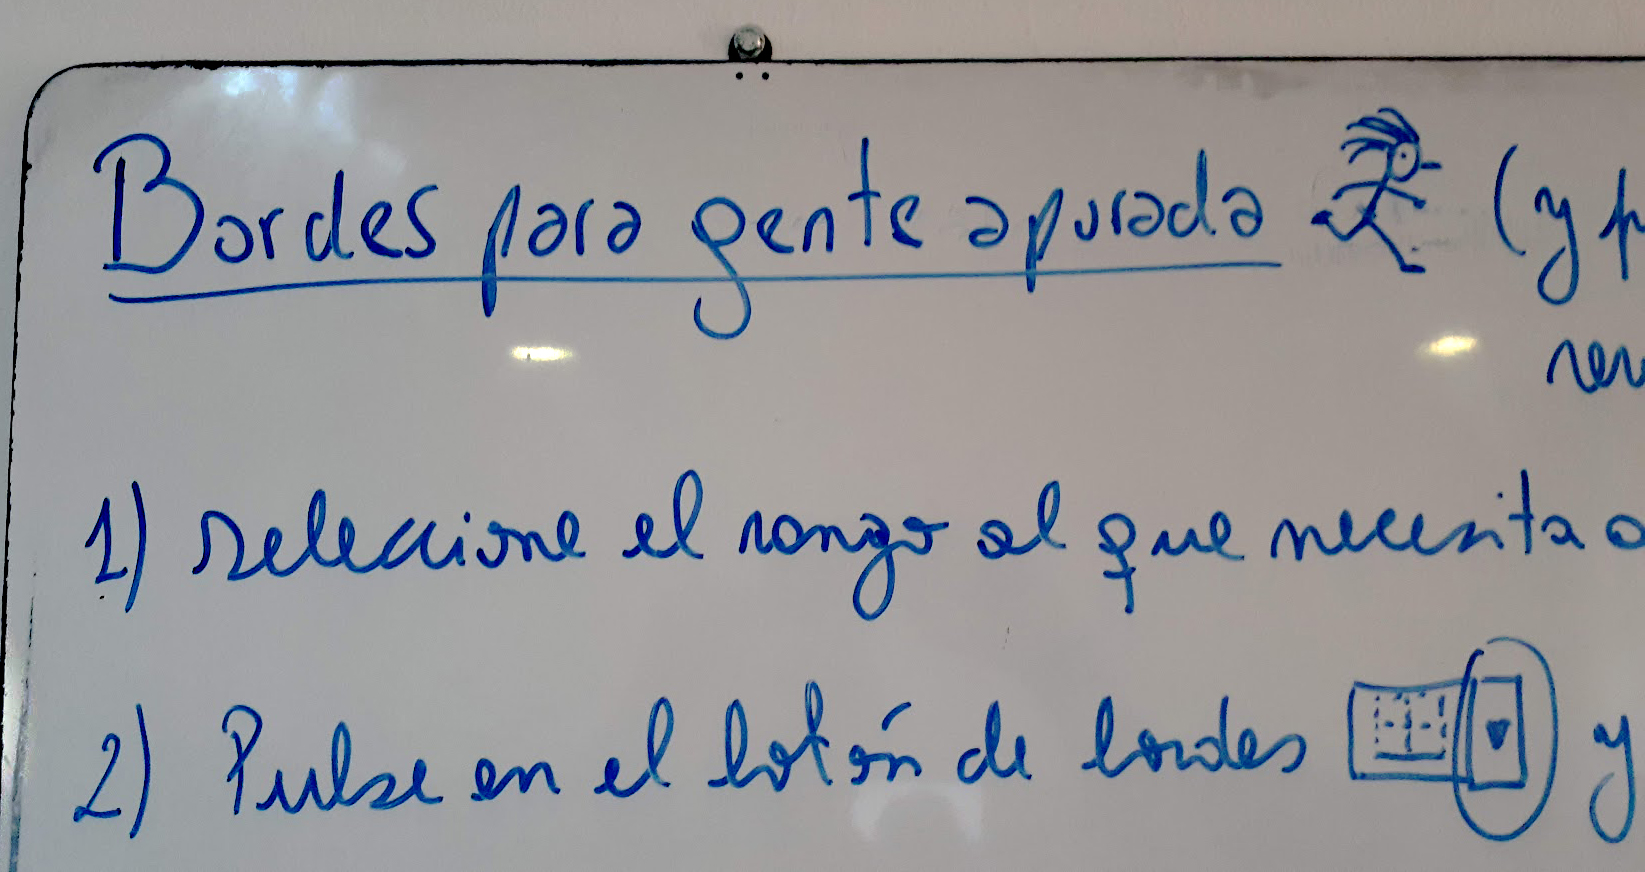 Bordes para gente apurada (y
1) seleccione el rango al que necesita
2) Pulse en el botón de bordes y